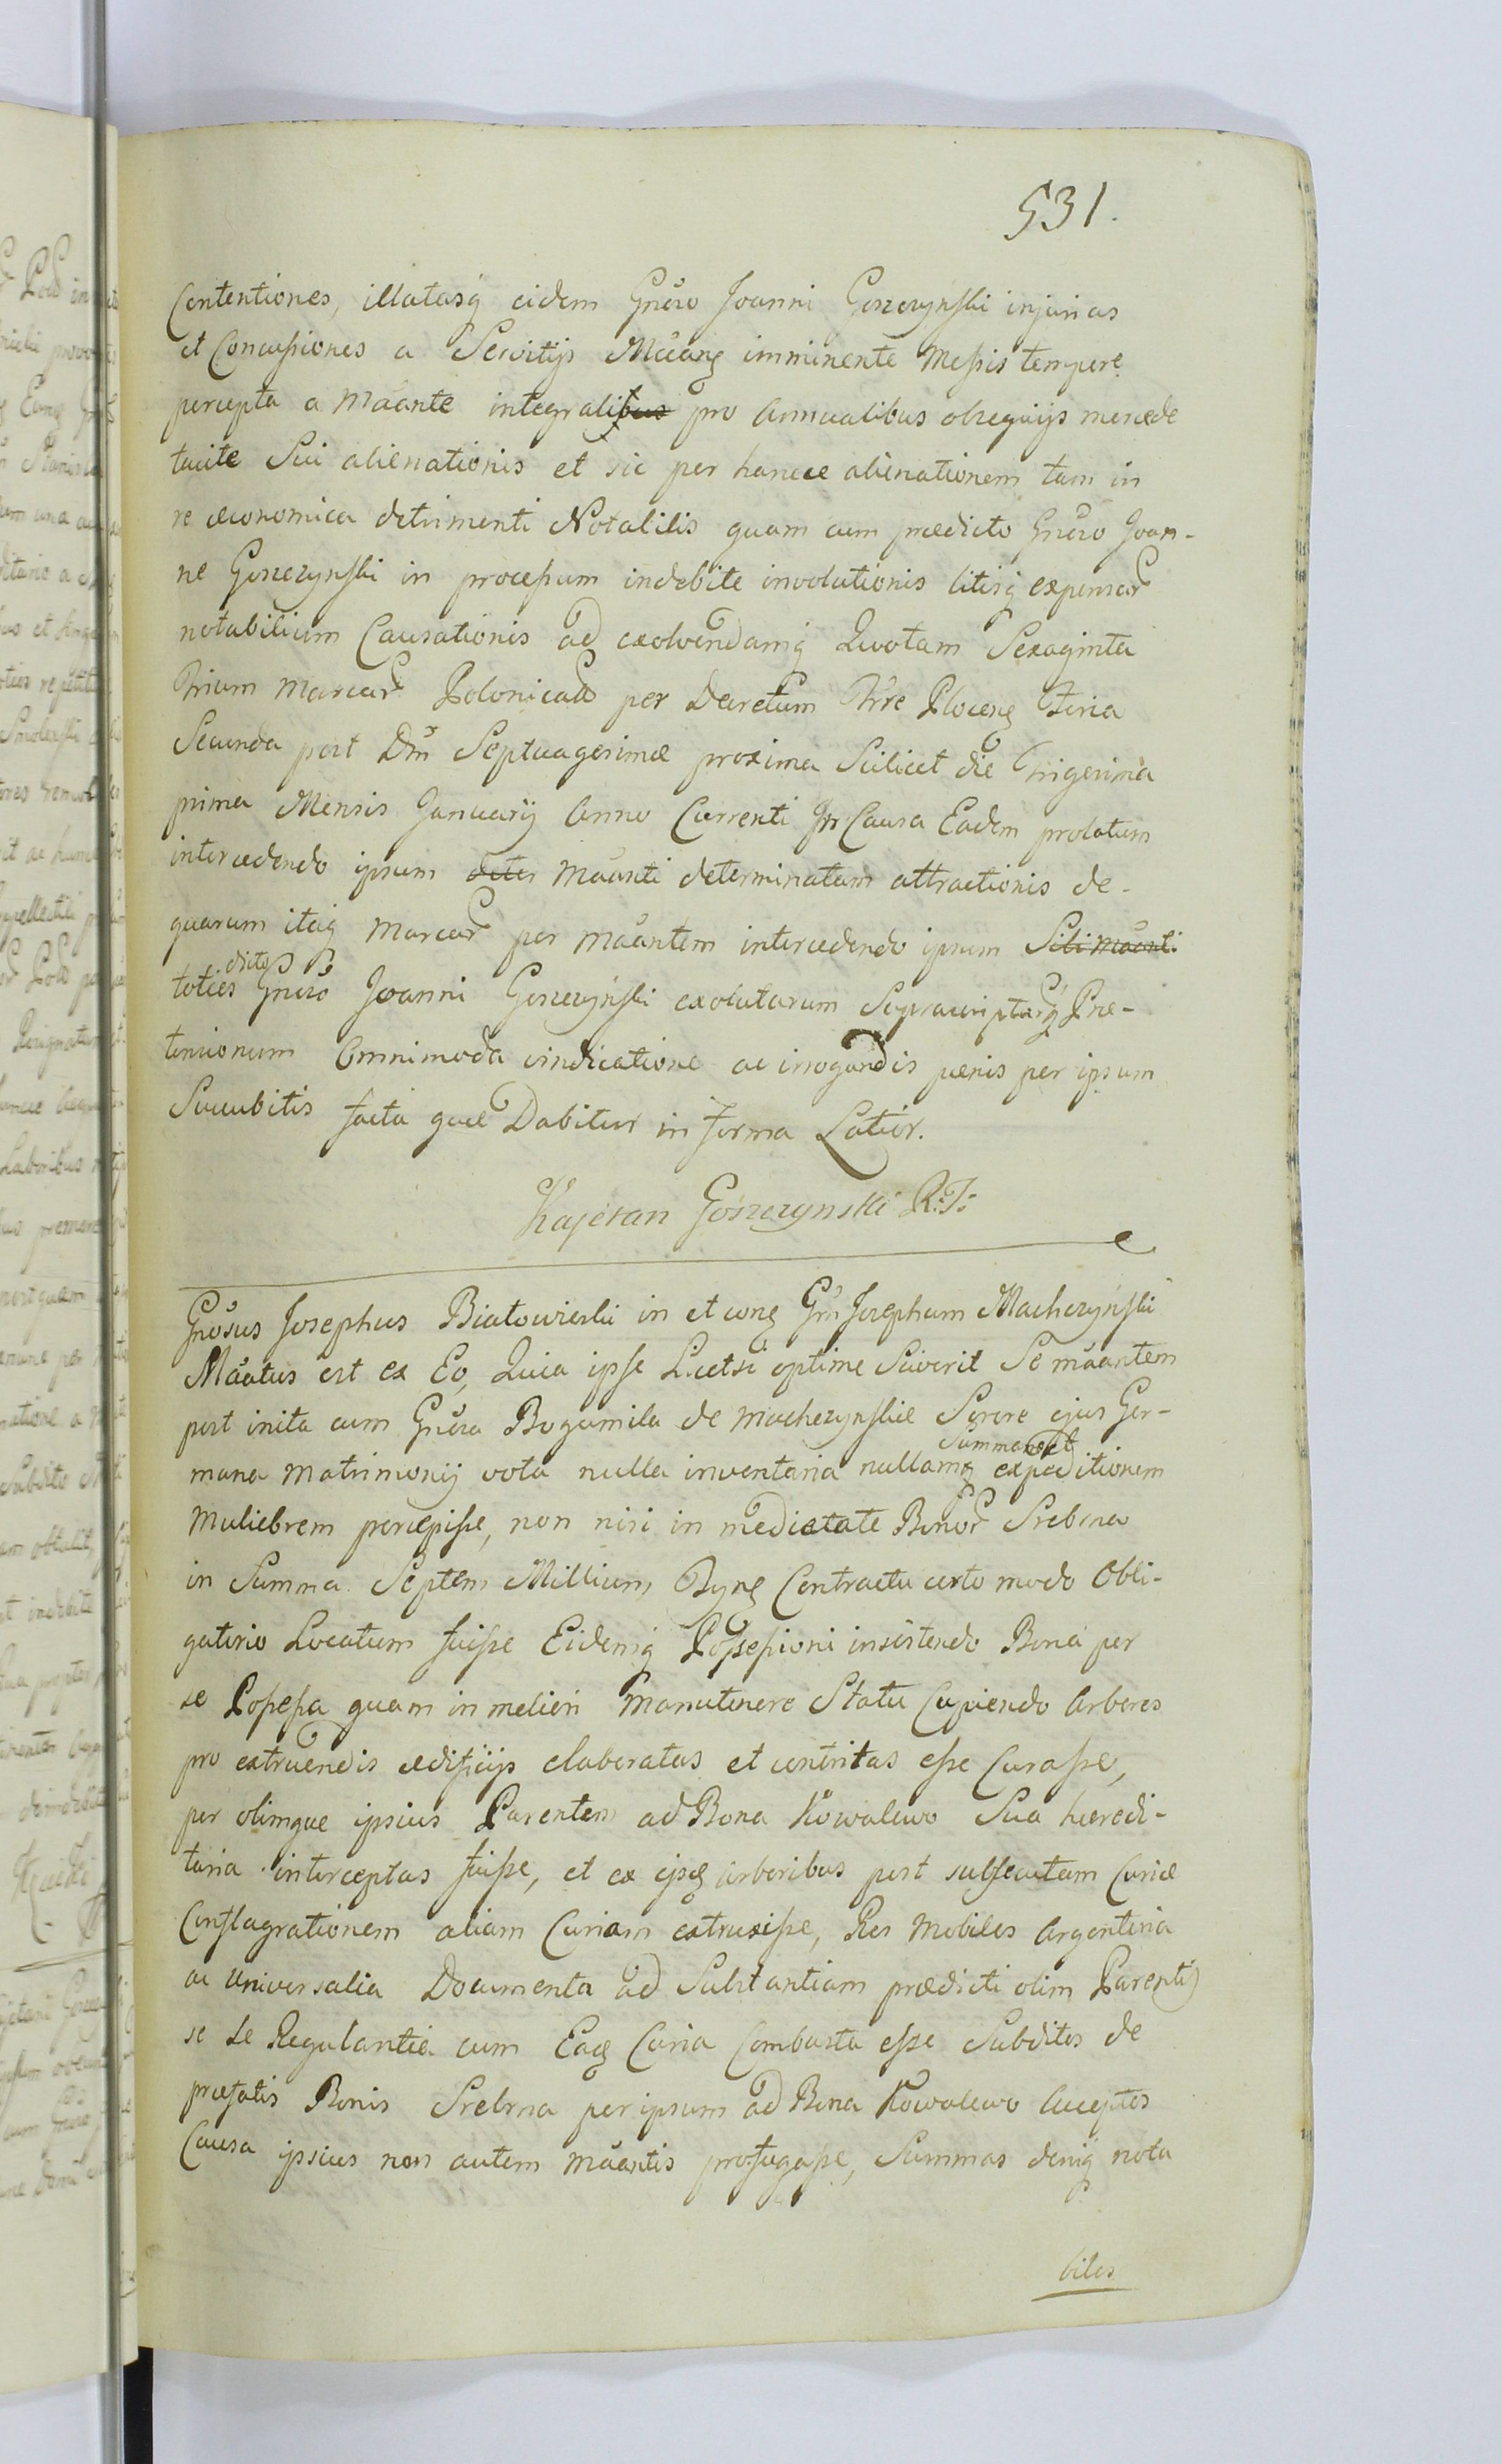 531.
Contentiones, illatasq̃ eidem Gnẽro Joanni Goszczynski injurias
et Concussiones a Servitijs Mãang imminente Messis tempore
percepta a Mãante integrali pro Annualibus obsequijs mercede
tacite Sui alienationis et sic per hancce alienationem tam in
re œconomica detrimenti Notabilis quam cum prædicto Gnẽro Joan-
ne Goszczynski in processum indebite involutionis litisq̃ expensar
notabilium Causationis ad exolvendamq̃ Quotam Sexaginta
Trium Marcar Polonical per Decretum Trre Ploceng Feria
Secunda post Dm̃ Septuagesimæ proxima Scilicet die Trigesima
prima Mensis Januarij Anno Currenti In Causa Eadem prolatum
intercedendo ipsum deter Mãanti determinatam attractionis de-
quarum itaq̃ Marcar per Mãantem intercedendo ipsum Sibi Mãanti
toties dicto Gnẽro Joanni Goszczynski exolutarum Suprascriptarq̃ Præ-
tensionum Omnimoda vindicatione ac irrogandis pænis per ipsum
Succubitis facta quæ Dabitur in forma Latior.
Kajetan Goszczynski R:T:
Gnõsus Josephus Białowieski in et cong Gñ Josephum Macherzynski
Mãatus est ex Eo, Quia ipse Licetsi optime Sciverit Se mãantem
post inita cum Gnẽra Bogumila de Macherzynskie Sorore ejus Ger-
mana Matrimonij vota nulla inventaria nullamq̃ Summam et expeditionem
Muliebrem percepisse, non nisi in medietate Bonor Srebrna
in Summa Septem Millium Byng Contractu certo modo Obli-
gatorio Locatum fuisse Eidemq̃ Possessioni insistendo Bona per
se Possessa quam in meliori Manutenere Statu Cupiendo Arbores
pro extruendis ædificijs elaboratas et contritas esse Curasse,
per olimque ipsius Parentem ad Bona Kowalewo Sua hæredi-
taria interceptas fuisse, et ex ijsg arboribus post subsecutam Curiæ
Conflagrationem aliam Curiam extruxisse, Res Mobiles Argenteria
ac Universalia Documenta ad Substantiam prædicti olim Parentis
se se Regulantia cum Eag Curia Combusta esse Subditos de
præfatis Bonis Srebrna per ipsum ad Bona Kowalewo Acceptos
Causa ipsius non autem Mãantis profugasse, Summas deniq̃ nota
biles